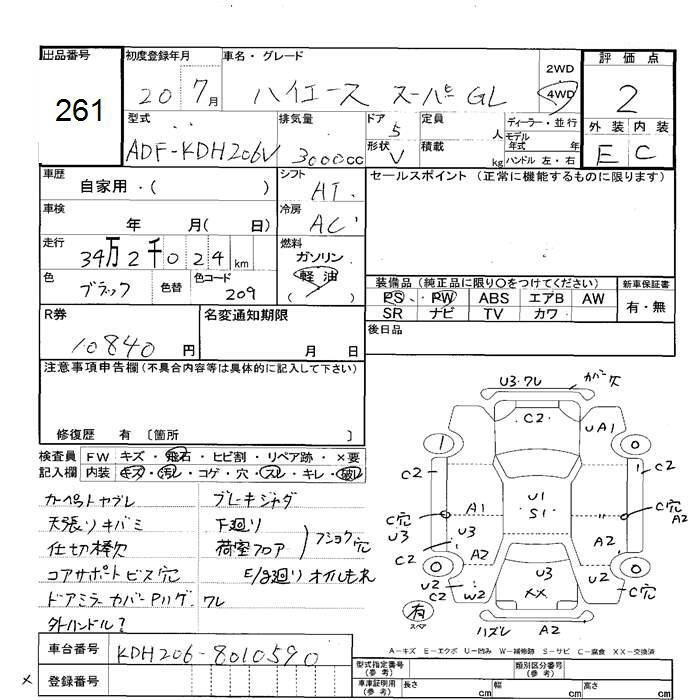 出品番号 261
初度登録年月 20 7月
車名・グレード ハイエース スーパーGL
2WD 4WD
評価点 2
外装 E 内装 C
型式 ADF-KDH206V
排気量 3000cc
ドア 5 形状 V
定員 人 積載 kg
ディーラー・並行
モデル年式 年式
ハンドル 左・右
車歴 自家用・( )
シフト AT
セールスポイント (正常に機能するものに限ります)
車検 年 月( 日)
冷房 AC
走行 34万2千024km
燃料 ガソリン 軽油 ( )
色 ブラック 色替 色コード 209
装備品 (純正品に限り〇をつけてください)
PS PW ABS エアB AW
SR ナビ TV カワ
新車保証書 有・無
R券 10840円
名変通知期限 月 日
後日品
注意事項申告欄 (不具合内容等は具体的に記入して下さい)
修復歴 有 〔箇所 〕
検査員記入欄
FW キズ・飛石・ヒビ割・リペア跡・×要
内装 キズ・汚レ・コゲ・穴・スレ・キレ・破レ
カーペットヤブレ
天張りキバミ
仕切棒欠
コアサポートビス穴
ドアミラーカバーPハゲ・ワレ
外ハンドル?
ブレーキジャダ
下廻り
荷室フロア
フショク穴
E/g廻りオイルもれ
U3・ワレ カバー欠
C2 UA1
C2 C2
A1 U1 S1 C穴 A2
C穴 U3 U3
C2 A2 A2
U2 W2 U3 XX U2 C穴
有 スペア
ハズレ A2
A-キズ E-エクボ U-凹み W-補修跡 S-サビ C-腐食 XX-交換済
車台番号 KDH206-8010590
× 登録番号
型式指定番号 (参考) 類別区分番号 (参考)
車庫証明用 (参考) 長さ cm 幅 cm 高さ cm